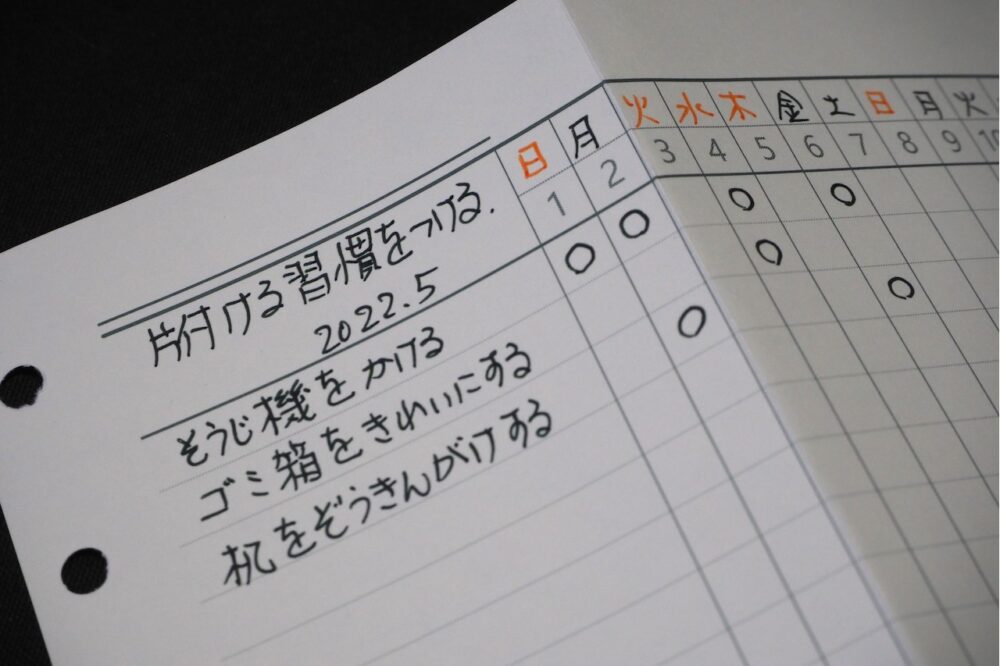 片付ける習慣をつける.
2022.5
日 月 火 水 木 金 土 日 月 火
1 2 3 4 5 6 7 8 9 10
そうじ機をかける
ゴミ箱をきれいにする
机をぞうきんがけする